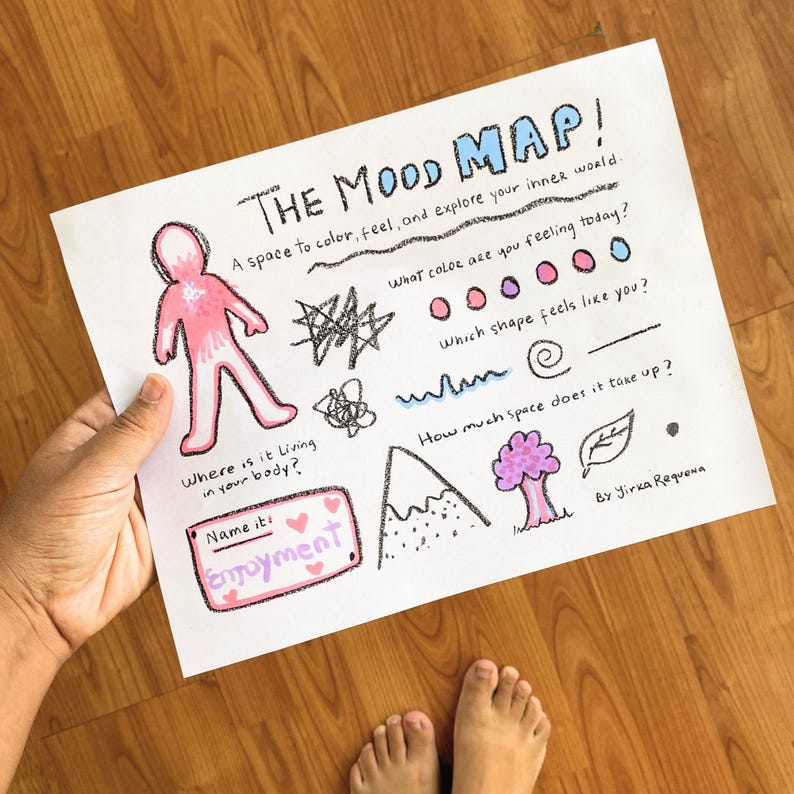 THE MOOD MAP!
A space to color, feel, and explore your inner world.
What color are you feeling today?
Which shape feels like you?
How much space does it take up?
Where is it living
in your body?
Name it:
Enjoyment
By Yirka Requena